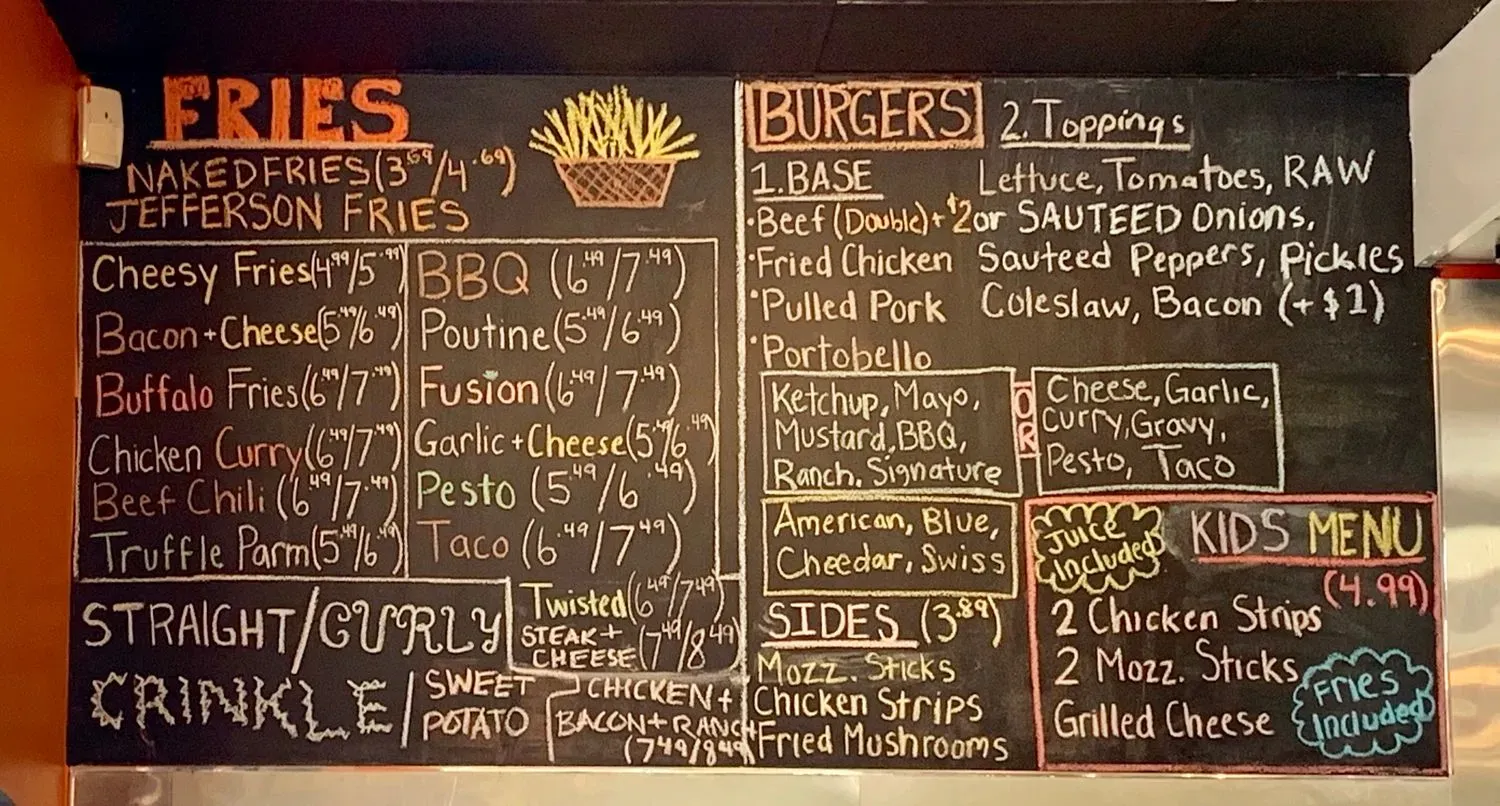 FRIES
NAKED FRIES (3.69/4.69)
JEFFERSON FRIES
Cheesy Fries (4.99/5.99)
Bacon + Cheese (5.49/6.49)
Buffalo Fries (6.49/7.49)
Chicken Curry (6.49/7.49)
Beef Chili (6.49/7.49)
Truffle Parm (5.49/6.49)
BBQ (6.49/7.49)
Poutine (5.49/6.49)
Fusion (6.49/7.49)
Garlic + Cheese (5.49/6.49)
Pesto (5.49/6.49)
Taco (6.49/7.49)
Twisted (6.49/7.49)
STEAK +
CHEESE (7.49/8.49)
STRAIGHT/CURLY
CRINKLE/
SWEET
POTATO
CHICKEN +
BACON + RANCH
(7.49/8.49)
BURGERS
1. BASE
• Beef (Double) + $2
• Fried Chicken
• Pulled Pork
• Portobello
2. Toppings
Lettuce, Tomatoes, RAW
or SAUTEED Onions,
Sauteed Peppers, Pickles
Coleslaw, Bacon (+ $1)
Ketchup, Mayo,
Mustard, BBQ,
Ranch. Signature
OR
Cheese, Garlic,
Curry, Gravy,
Pesto, Taco
American, Blue,
Cheedar, Swiss
SIDES (3.89)
Mozz. Sticks
Chicken Strips
Fried Mushrooms
Juice
Included
KIDS MENU
(4.99)
2 Chicken Strips
2 Mozz. Sticks
Grilled Cheese
Fries
Included